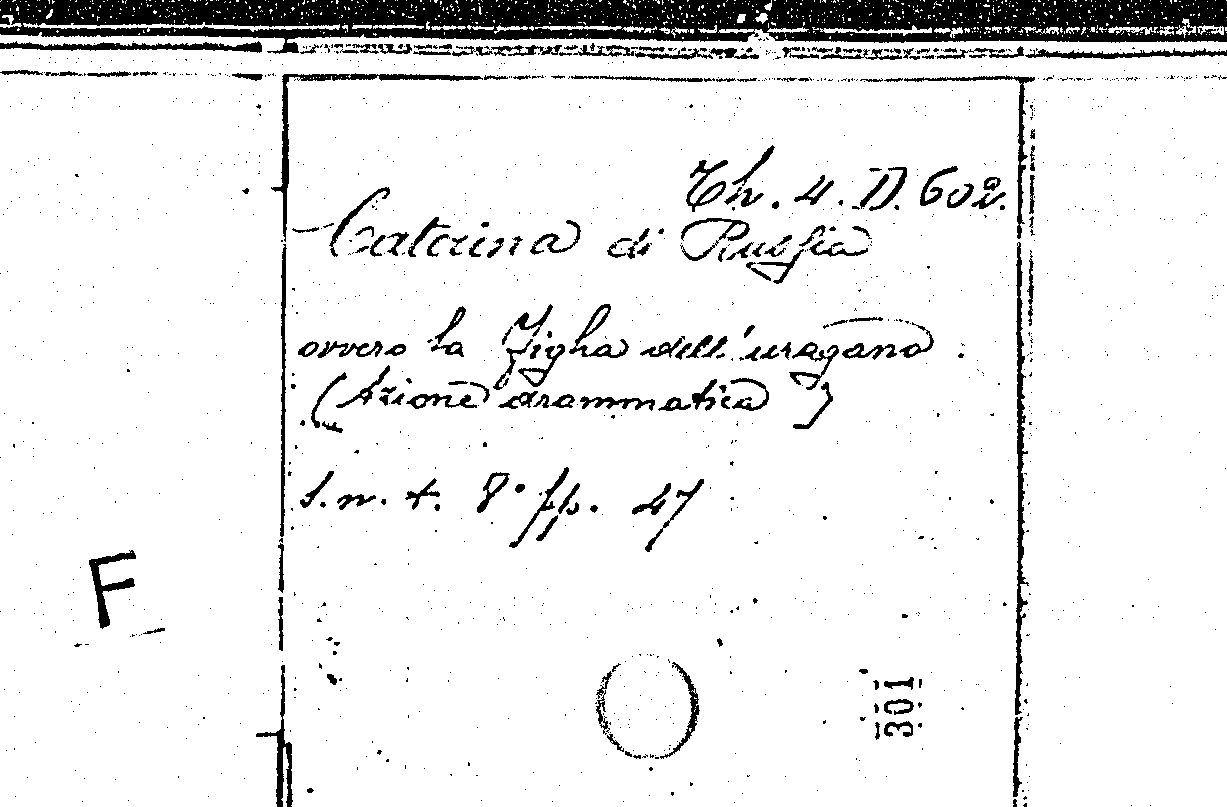 Th. 4. D. 602.
Caterina di Russia
ovvero la Figlia dell'uragano.
(Azione drammatica)
s. n. t. 8° pp. 47
F
301